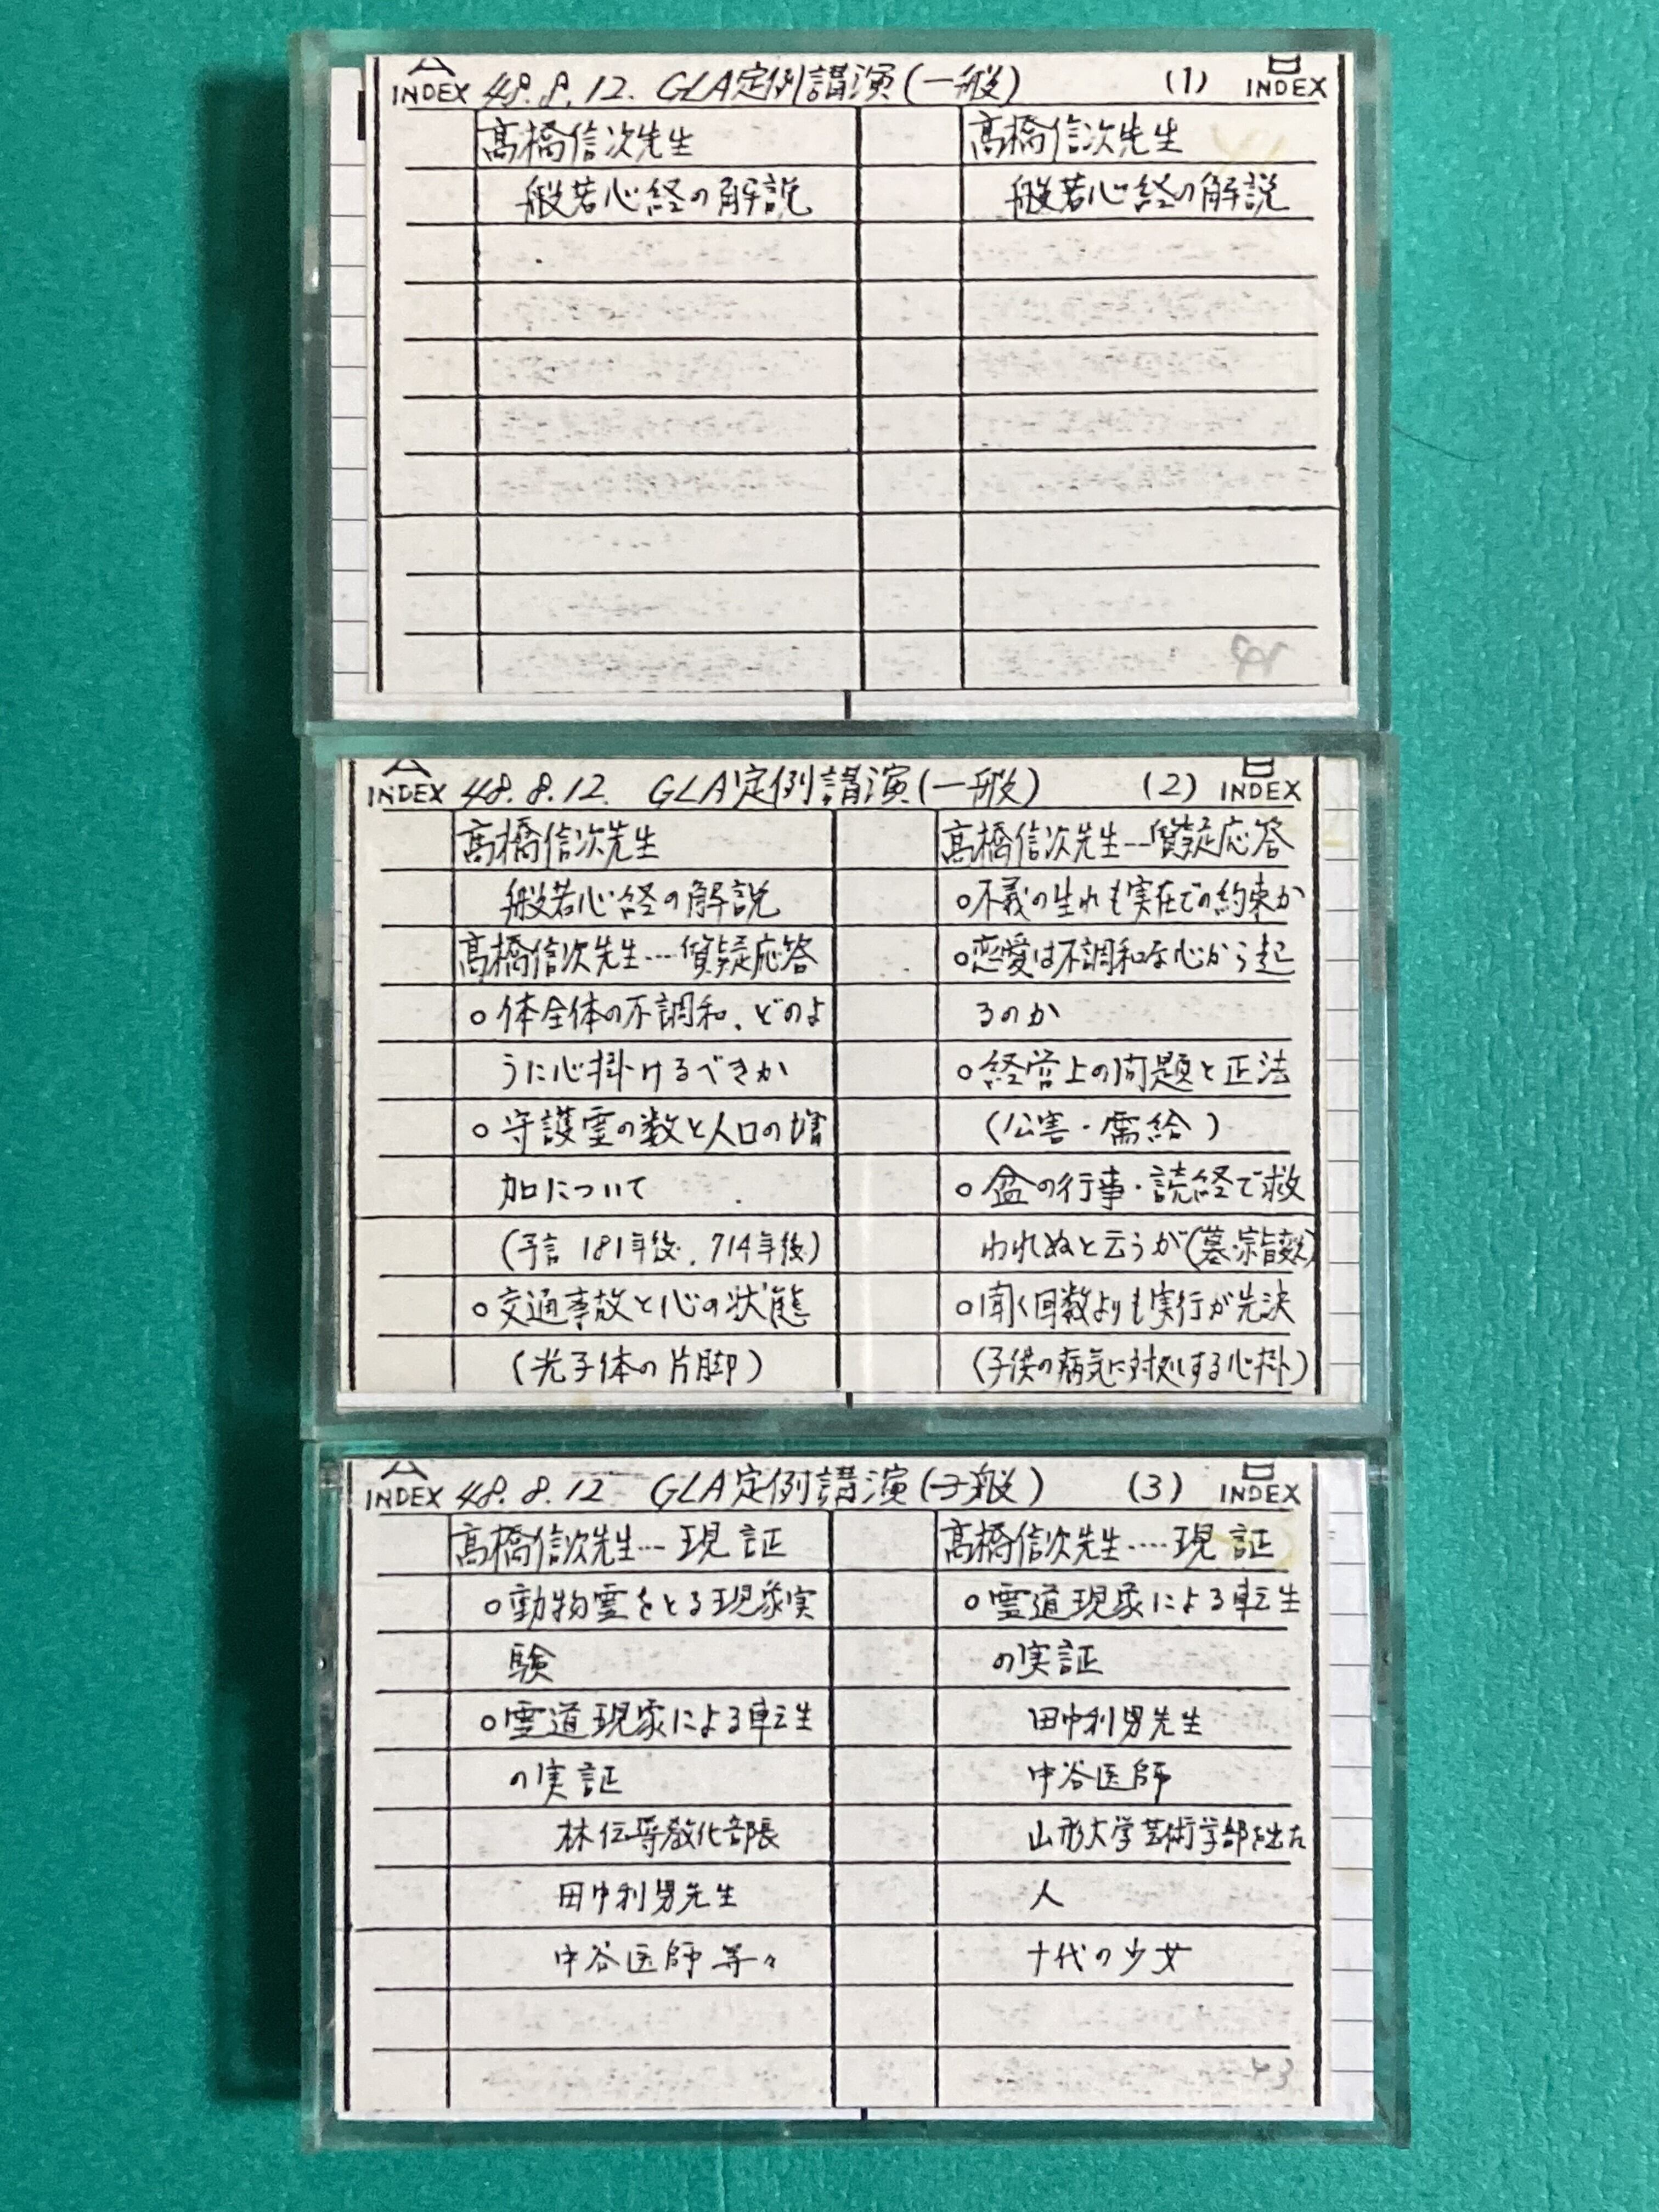 A INDEX 48.8.12. GLA定例講演(一般) (1) B INDEX
高橋信次先生
般若心経の解説
高橋信次先生
般若心経の解説
A INDEX 48.8.12. GLA定例講演(一般) (2) B INDEX
高橋信次先生
般若心経の解説
高橋信次先生....質疑応答
○体全体の不調和、どのよ
うに心掛けるべきか
○守護霊の数と人口の増
加について
(予言 181年後、714年後)
○交通事故と心の状態
(光子体の片脚)
高橋信次先生---質疑応答
○不義の生れも実在での約束か
○恋愛は不調和な心から起
るのか
○経営上の問題と正法
(公害・需給)
○盆の行事・読経で救
われぬと云うが(墓・宗旨変え)
○聞く回数よりも実行が先決
(子供の病気に対処する心掛)
A INDEX 48.8.12 GLA定例講演(一般) (3) B INDEX
高橋信次先生---現証
○動物霊をとる現象実
験
○霊道現象による転生
の実証
林伝導教化部長
田中利男先生
中谷医師等々
高橋信次先生....現証
○霊道現象による転生
の実証
田中利男先生
中谷医師
山形大学芸術学部を出た
人
十代の少女
43